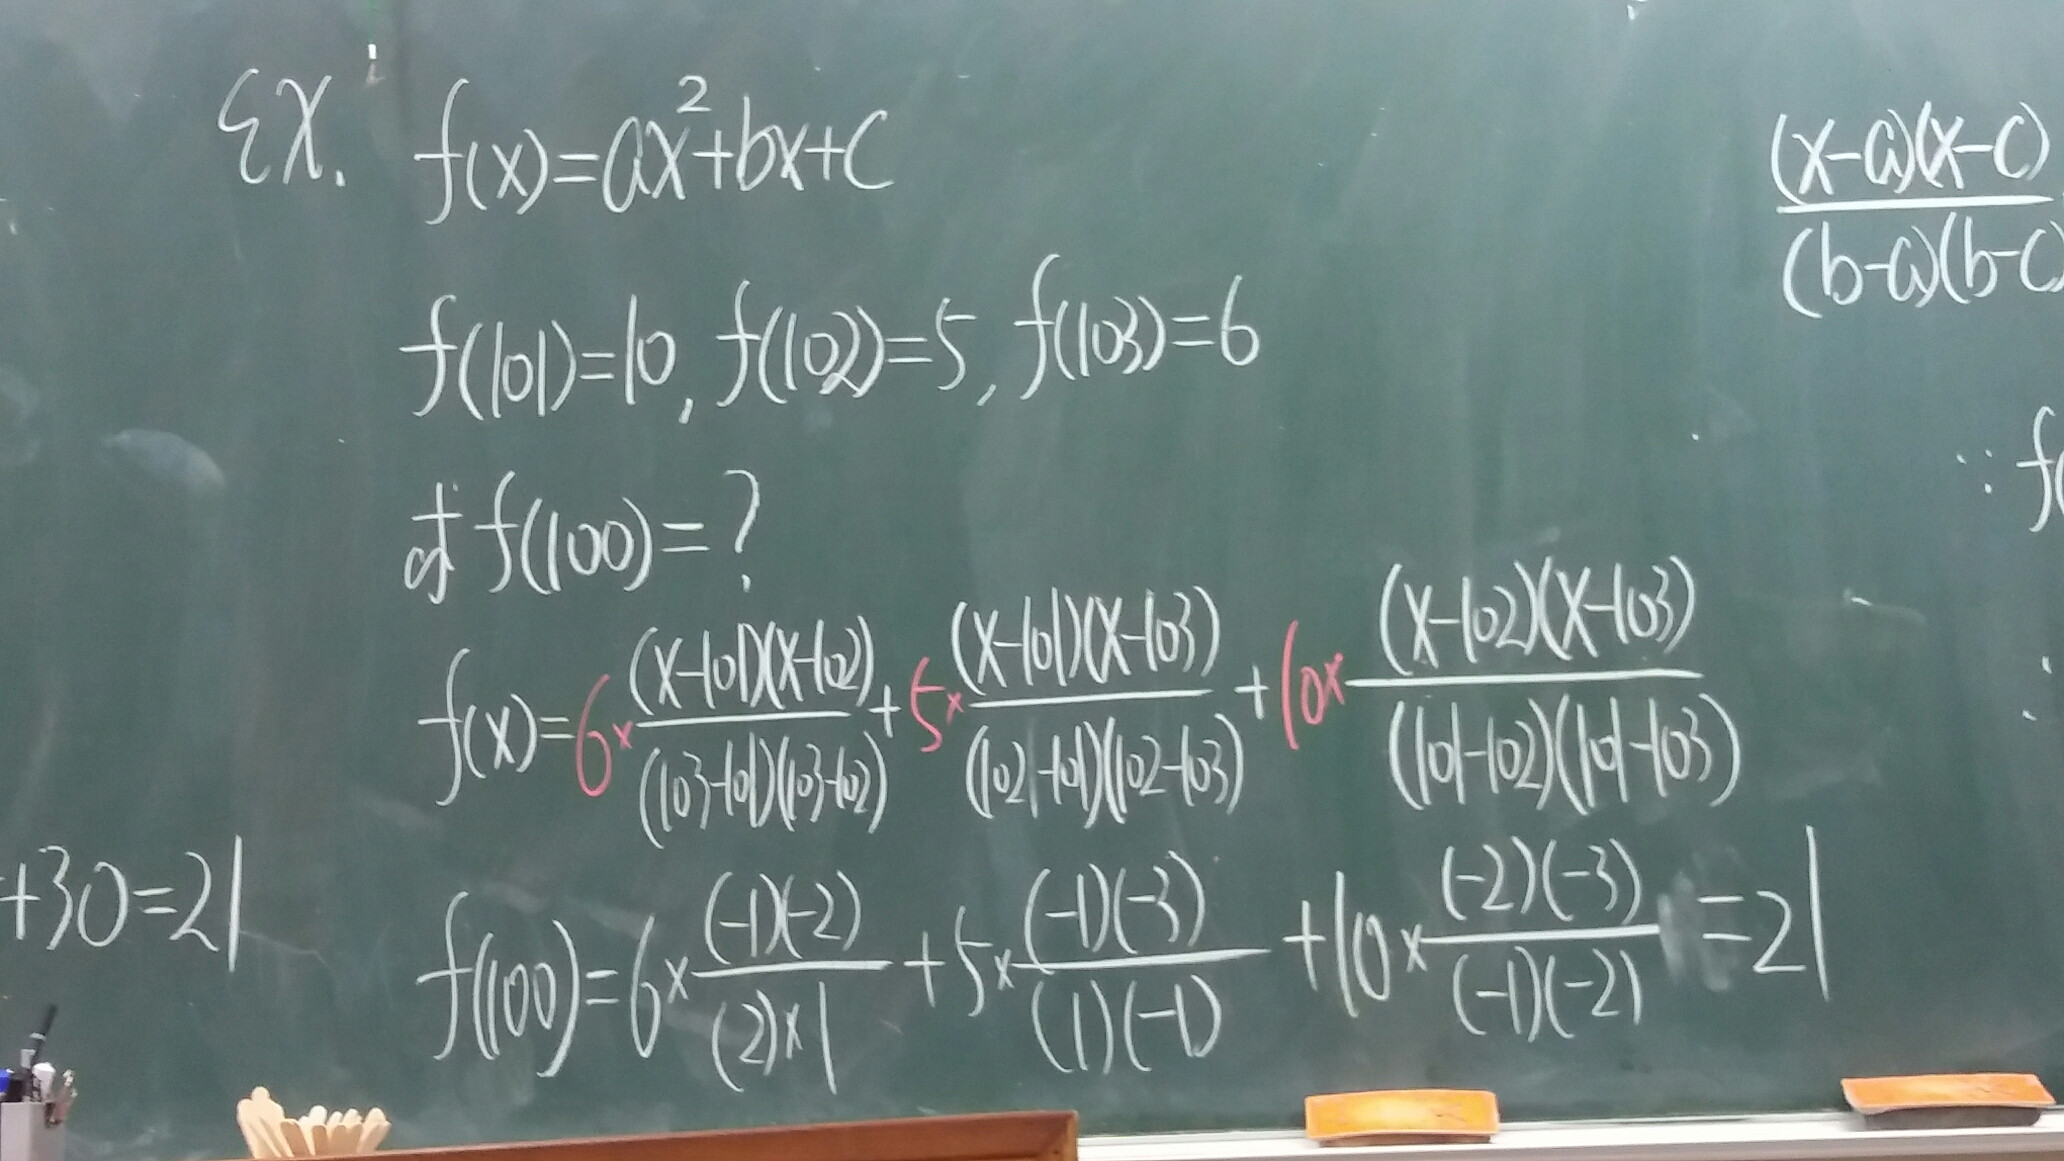 EX. f(x)=ax²+bx+c
f(101)=10, f(102)=5, f(103)=6
求 f(100)=?
f(x)=6×(x-101)(x-102)/(103-101)(103-102)+5×(x-101)(x-103)/(102-101)(102-103)+10×(x-102)(x-103)/(101-102)(101-103)
f(100)=6×(-1)(-2)/(2)×1+5×(-1)(-3)/(1)(-1)+10×(-2)(-3)/(-1)(-2)=21
+30=21
(x-a)(x-c)
(b-a)(b-c)
∵ f(